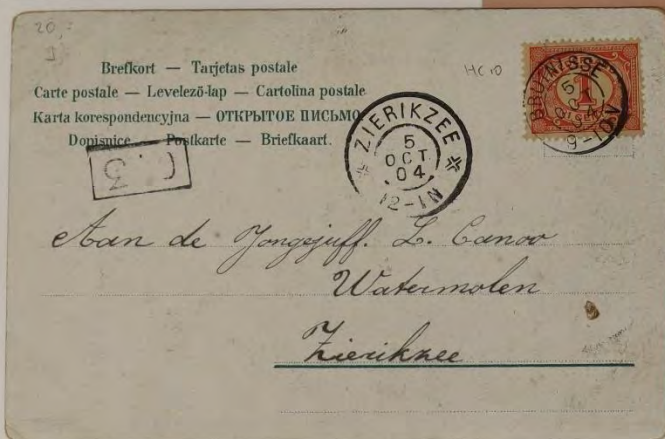 20,-
HC 10
Brefkort — Tarjetas postale
Carte postale — Levelező-lap — Cartolina postale
Karta korespondencyjna — ОТКРЫТОЕ ПИСЬМО
Dopisnice — Postkarte — Briefkaart.
BRUINISSE
5 OCT 04
9-10V
1
ZIERIKZEE
5
OCT
04
12-1N
3
Aan de Jongejuff. L. Canoo
Watermolen
Zierikzee